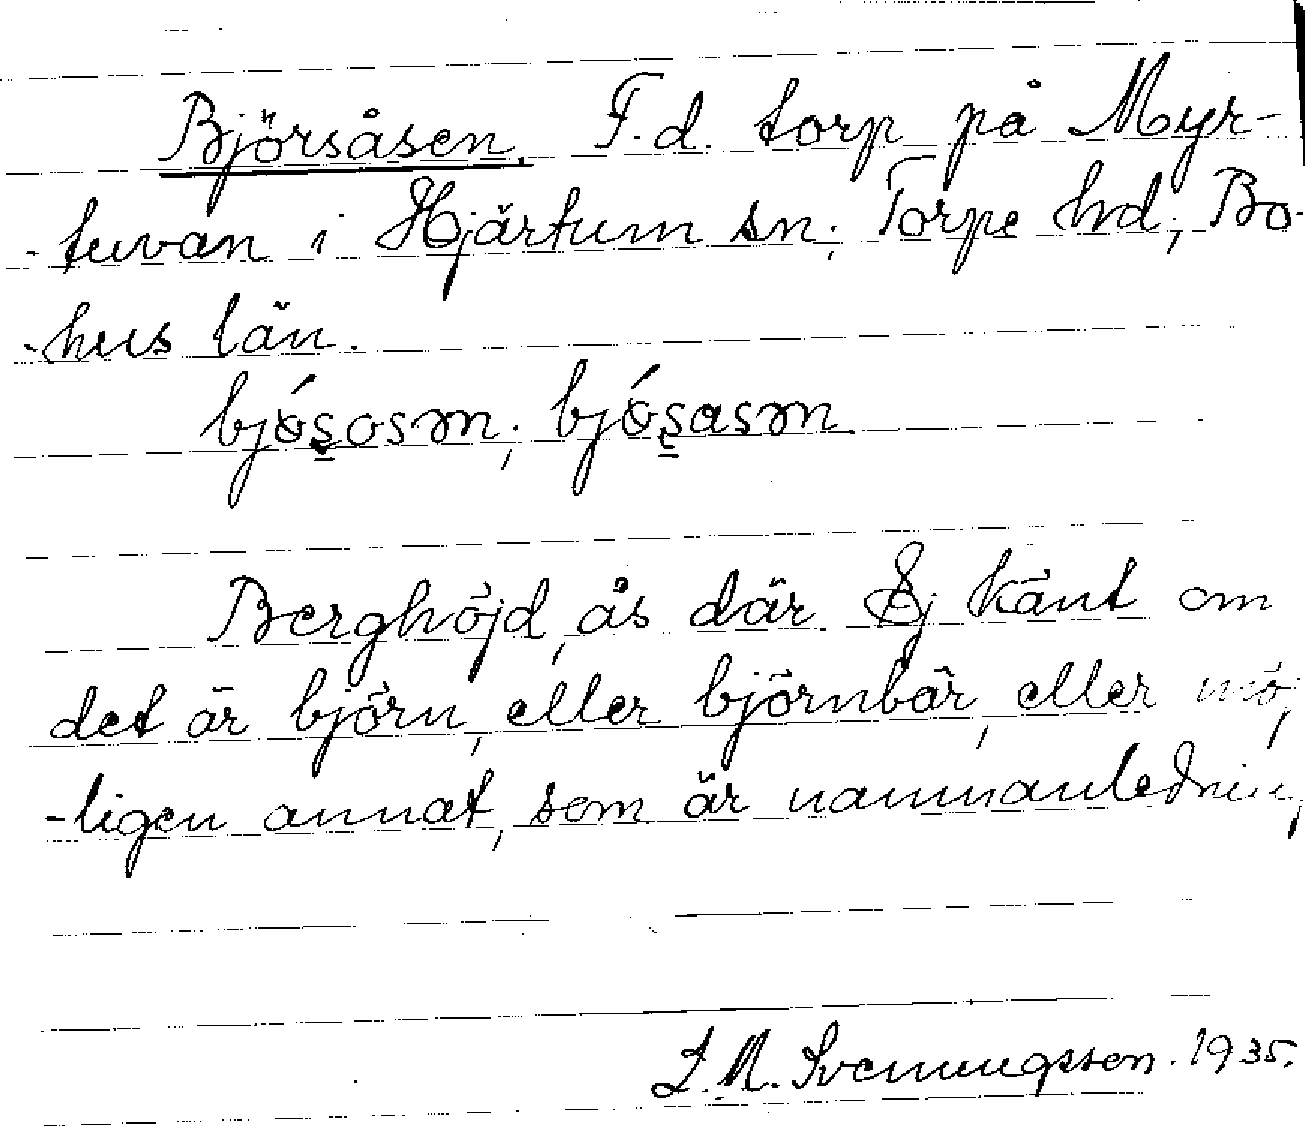 Björsåsen. F.d. torp på Myr-
-tuvan i Hjärtum sn; Torpe hd; Bo-
-hus län.
bjǿs̱osən; bjǿs̱asən
Berghöjd, ås där. Ej känt om
det är björn, eller björnbär, eller möj
-ligen annat, som är namnanledning
J. M. Svenungsson. 1935.